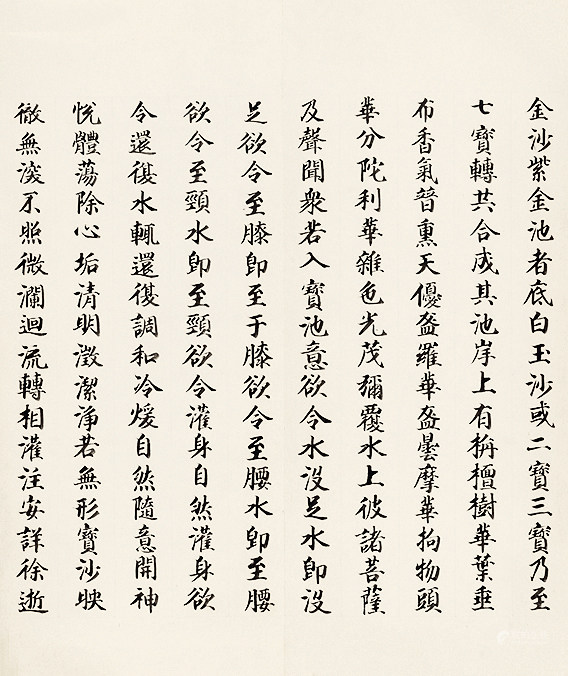 金沙紫金池者底白玉沙或二寶三寶乃至
七寶轉共合成其池岸上有栴檀樹華葉垂
布香氣普熏天優盋羅華盋曇摩華拘物頭
華分陀利華雜色光茂彌覆水上彼諸菩薩
及聲聞衆若入寶池意欲令水没足水即没
足欲令至膝即至于膝欲令至腰水即至腰
欲令至頸水即至頸欲令灌身自然灌身欲
令還復水輒還復調和冷煖自然隨意開神
恱體蕩除心垢清明澂潔淨若無形寶沙映
徹無深不照微瀾迴流轉相灌注安詳徐逝